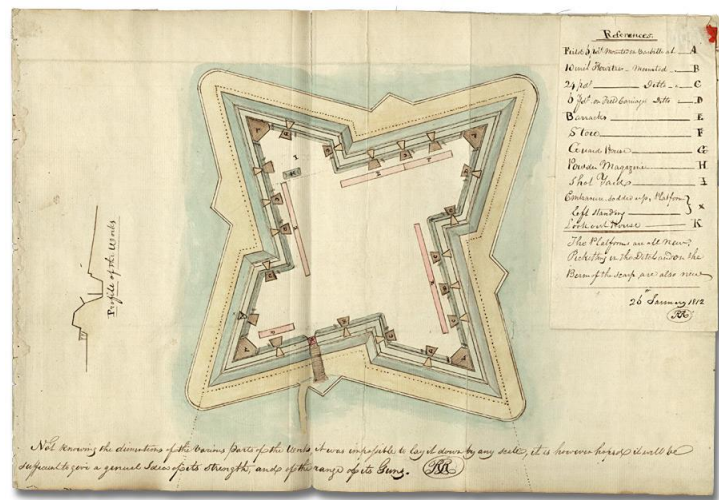 References.
Mounted on Barbette at A
Howitzer - Mounted B
24 pdr Ditto C
6 pdr on Field Carriage Ditto D
Barracks E
Store F
Guard House G
Powder Magazine H
Shot Yard I
Entrance, sodded up, Platform
left standing x
Look out House K
The Platforms are all new,
Picketting in the Ditch and on the
Berm of the scarp are also new
26th January 1812
Profile of the Works
Not knowing the dimentions of the Various parts of the Works, it was impossible to lay it down by any scale, it is however hoped it will be
sufficient to give a general Idea of its strength, and of the range of its Guns.